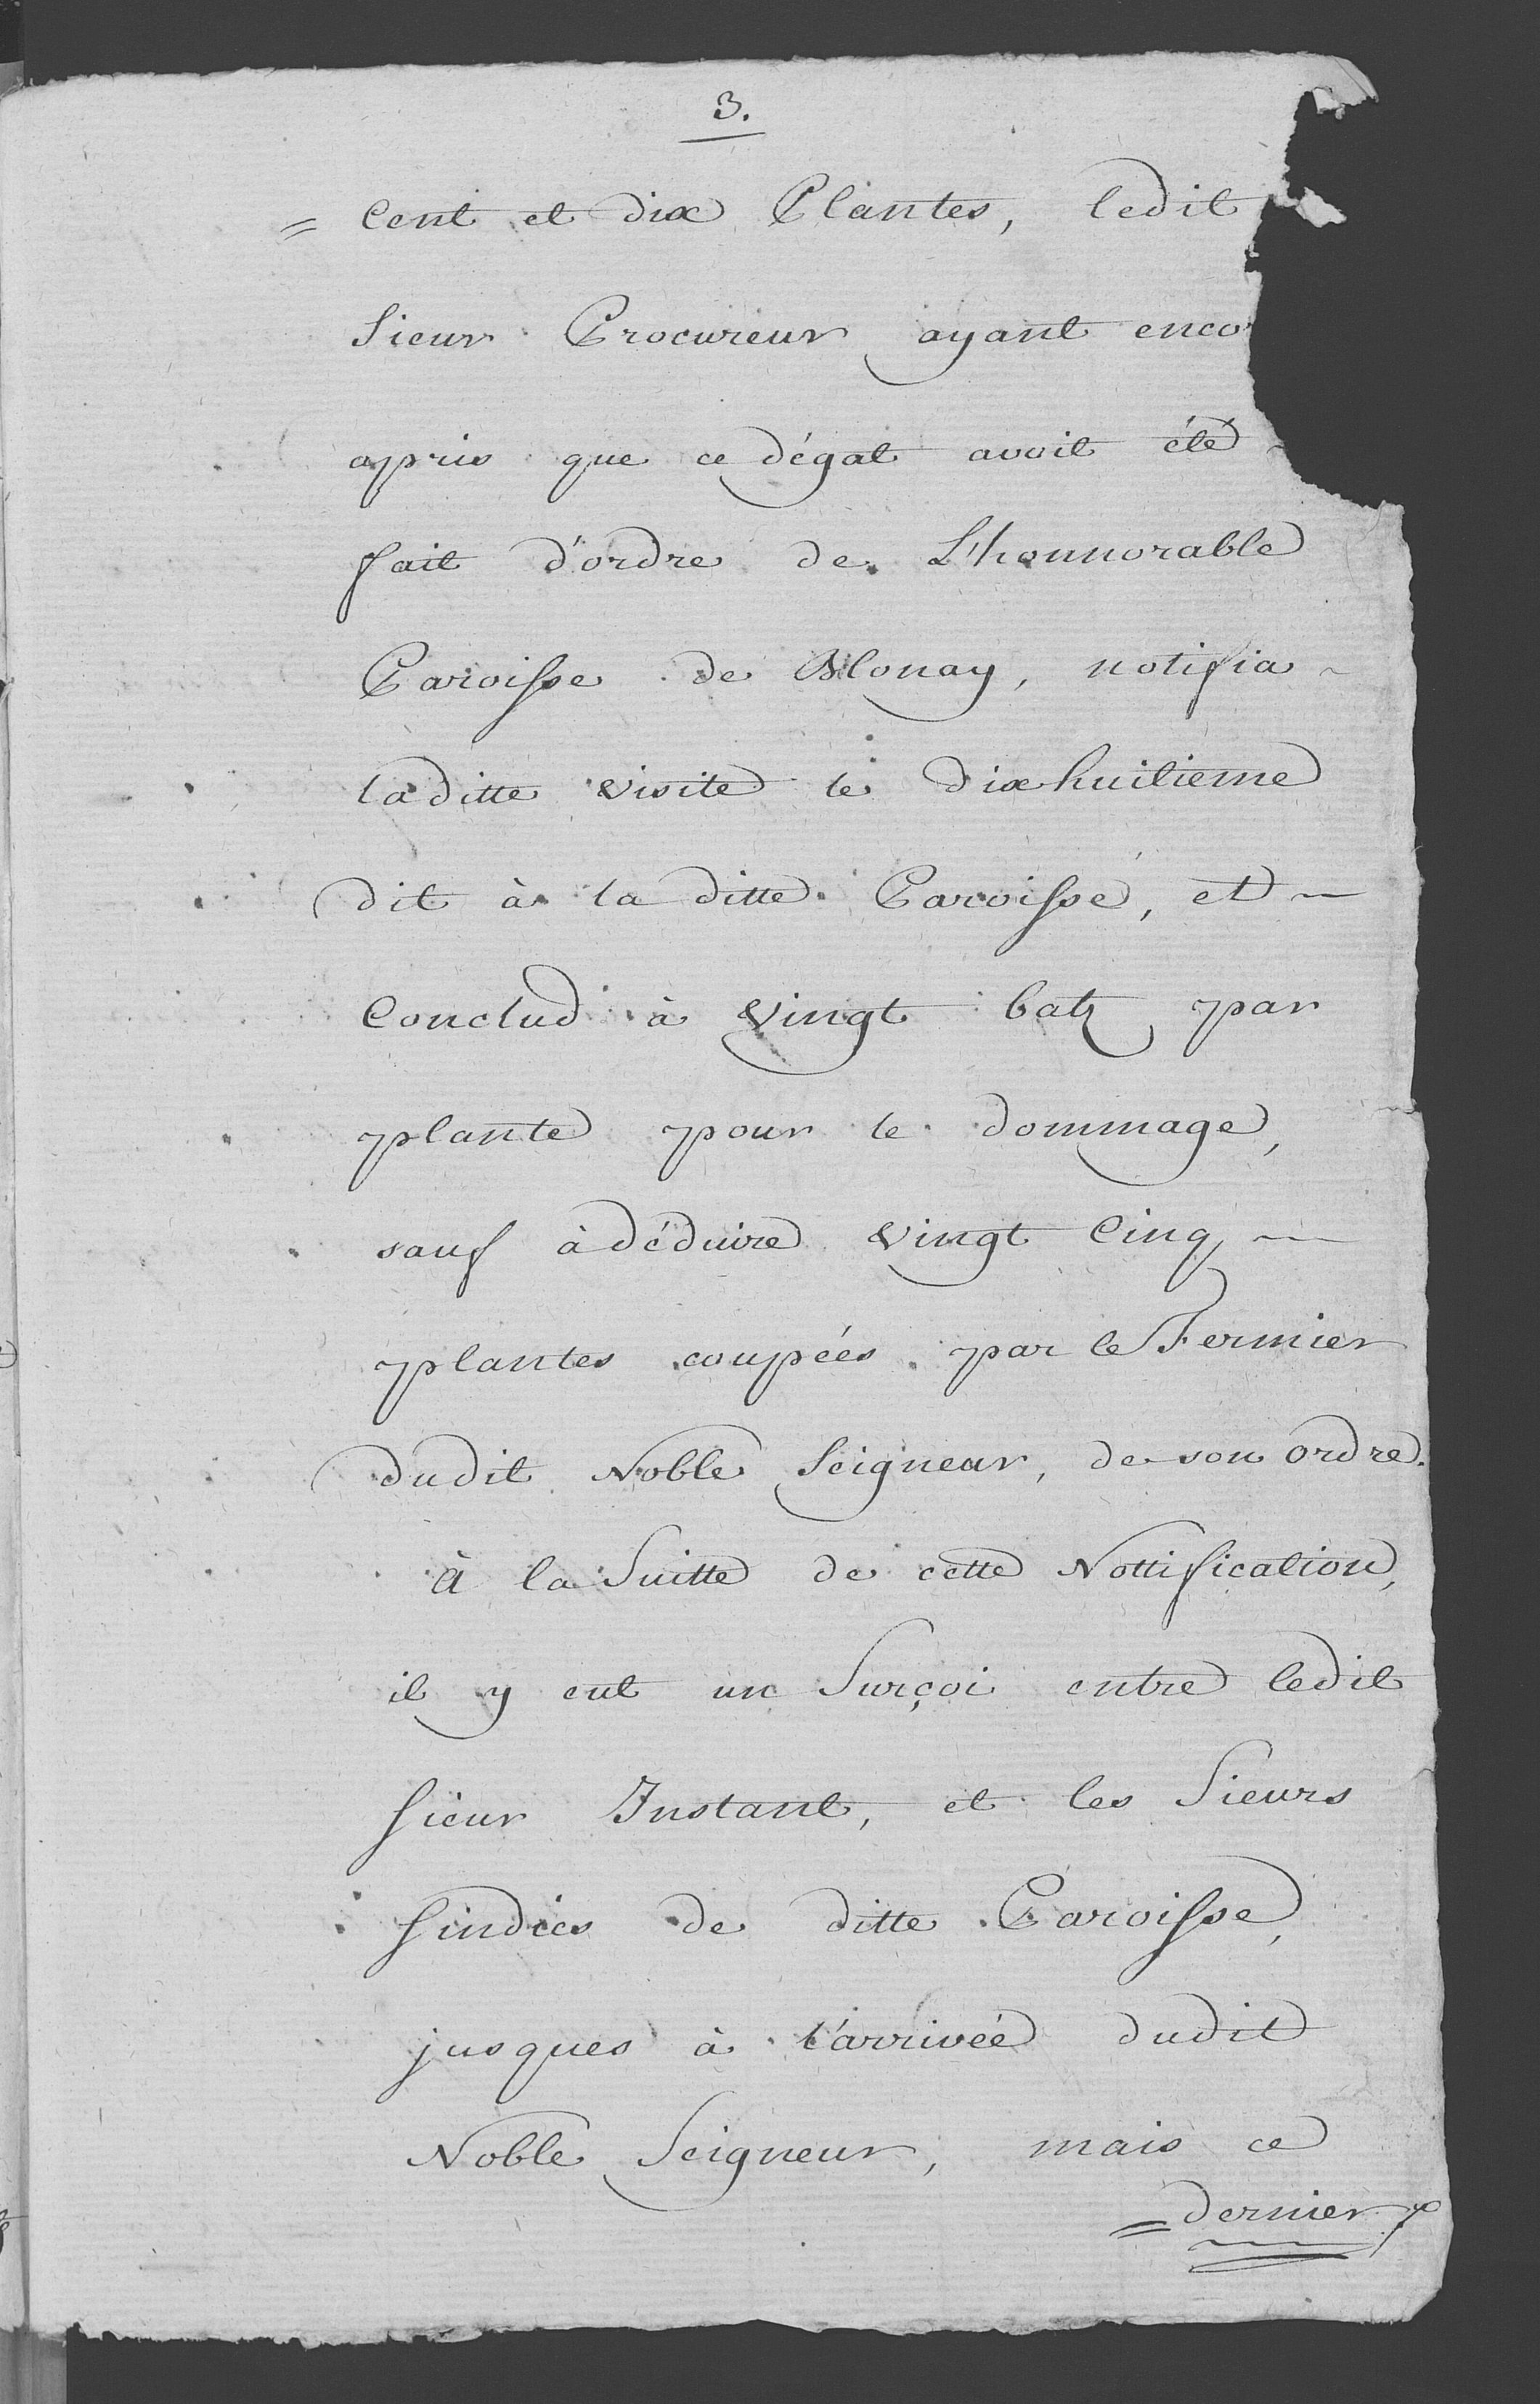 3.
= Cent et dix Plantes, ledit
Sieur Procureur ayant enco
apris que ce dégat avoit été
fait d'ordre de L'honnorable
Paroisse de Blonay, notifia
laditte visite le dixhuitieme
dit à la ditte Paroisse, et
Conclud à vingt batz par
plante pour le dommage,
sauf à déduire vingt Cinq
plantes coupées par le Fermier
dudit Noble Seigneur, de son ordre.
à la Suitte de cette Nottification,
il y eut un Surçoi entre ledit
Sieur Instant, et les Sieurs
Sindics de ditte Paroisse,
jusques à l'arrivée dudit
Noble Seigneur, mais ce
= dernier